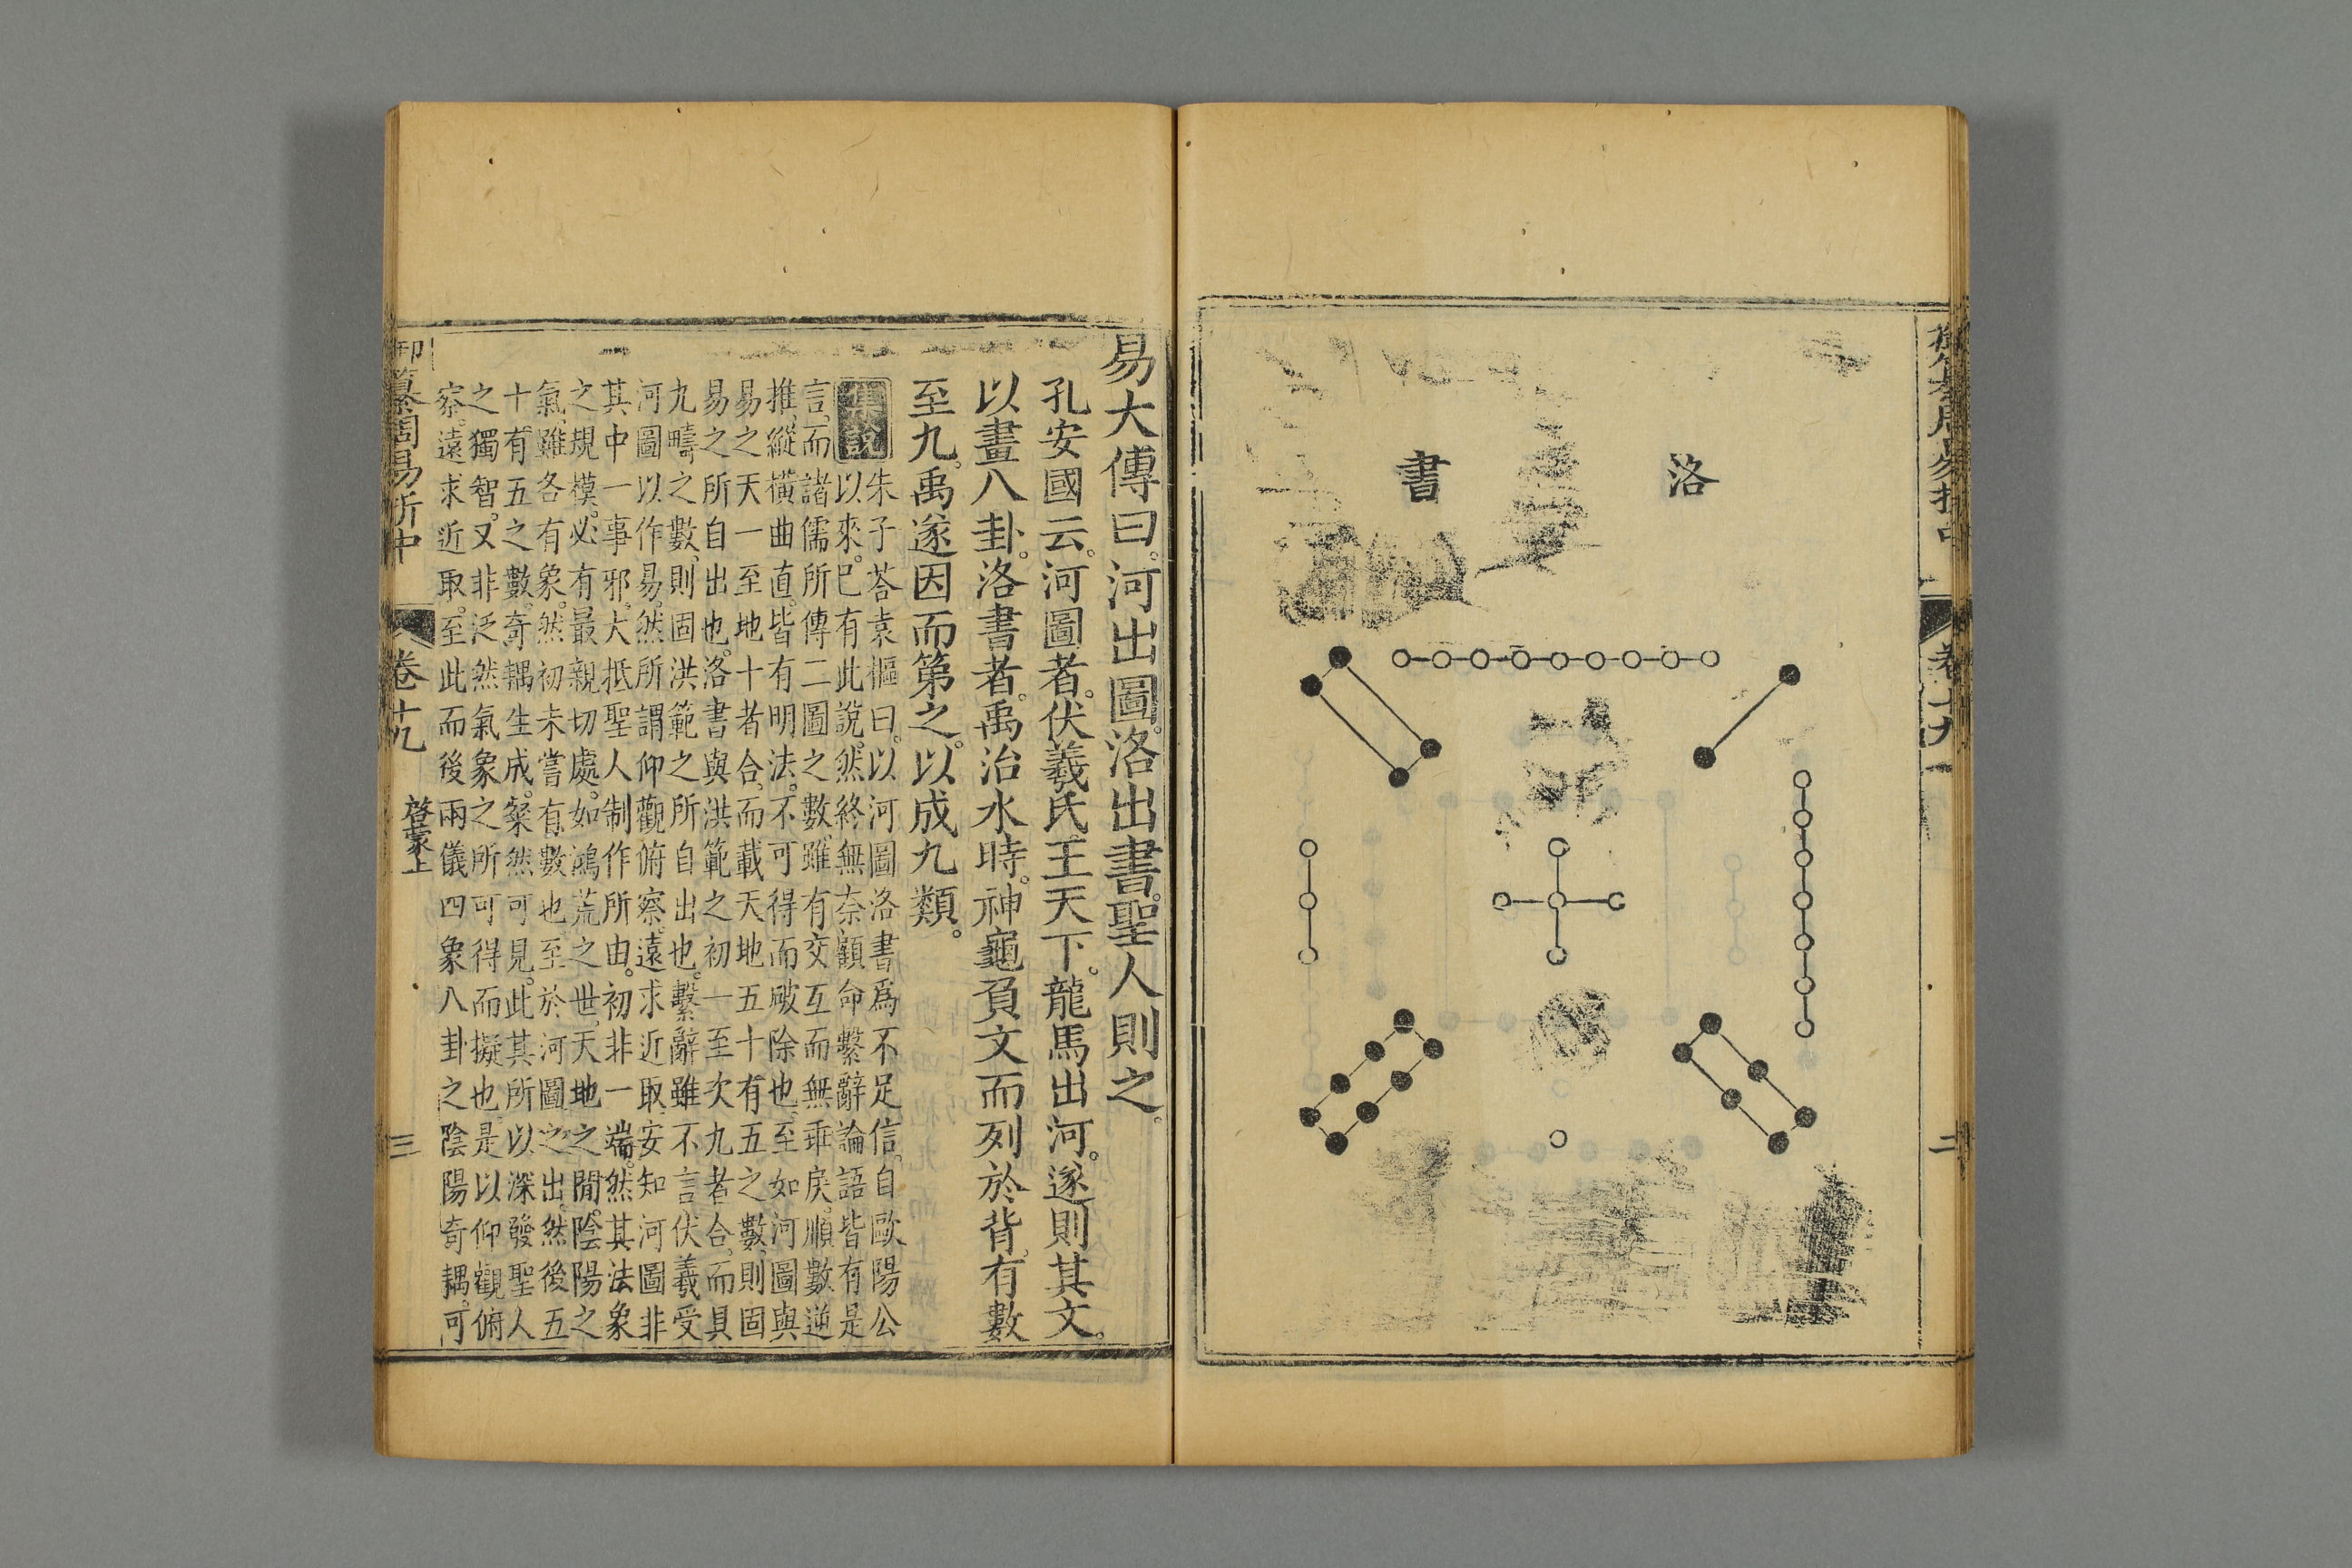 洛書
易大傳曰。河出圖。洛出書。聖人則之。
孔安國云。河圖者。伏羲氏王天下。龍馬出河。遂則其文。
以畫八卦。洛書者。禹治水時。神龜負文而列於背。有數
至九。禹遂因而第之。以成九類。
集說
朱子荅袁樞曰。以河圖洛書爲不足信。自歐陽公
以來。已有此說。然終無奈顧命繫辭論語皆有是
言。而諸儒所傳二圖之數。雖有交互而無乖戾。順數逆
推。縱橫曲直。皆有明法。不可得而破除也。至如河圖與
易之天一至地十者合。而載天地五十有五之數。則固
易之所自出也。洛書與洪範之初一至次九者合。而具
九疇之數。則固洪範之所自出也。繫辭雖不言伏羲受
河圖以作易。然所謂仰觀俯察。遠求近取。安知河圖非
其中一事邪。大抵聖人制作所由。初非一端。然其法象
之規模。必有最親切處。如鴻荒之世。天地之閒。陰陽之
氣。雖各有象。然初未嘗有數也。至於河圖之出。然後五
十有五之數。奇耦生成。粲然可見。此其所以深發聖人
之獨智。又非泛然氣象之所可得而擬也。是以仰觀俯
察。遠求近取。至此而後兩儀四象八卦之陰陽奇耦。可
御纂周易折中 卷十九 啓蒙上 三